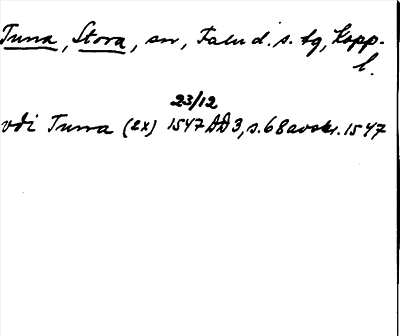 Tuna, Stora, sn, Falu d. s. tg, Kopp.
l.
23/12
vdi Tuna (2x) 1547 DD3, s. 68 avskr. 1547